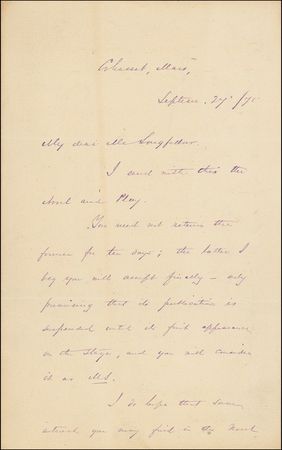 Cohasset, Mass,
Septem. 27 /75
My dear Mr Longfellow.
I send with this the
Novel and Play.
You need not return the
former for ten days; the latter I
beg you will accept finally — only
promising that its publication is
suspended until its first appearance
on the stage, and you will consider
it as MS.
I do hope that some
interest you may find in the Novel